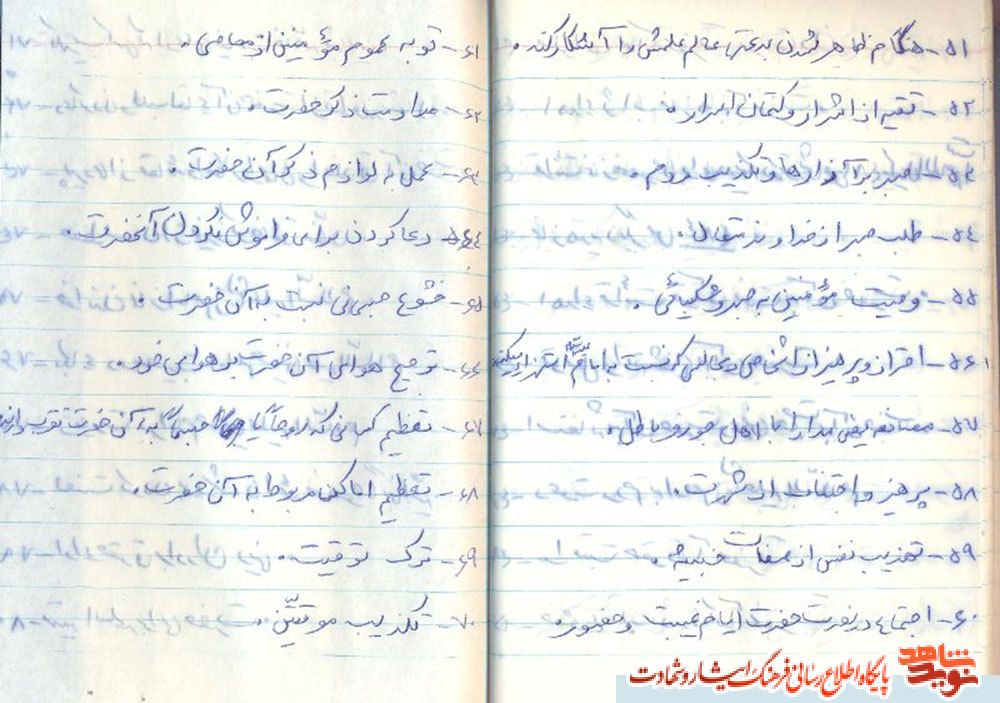 ۵۱- هنگام ظاهر شدن بدعتها عالم علمش را آشکار کند.
۵۲- تقیه از اشرار و کتمان اسرار.
۵۳- صبر بر آزارها و تکذیب مردم.
۵۴- طلب صبر از خداوند متعال.
۵۵- وصیت مؤمنین به صبر و شکیبائی.
۵۶- احتراز و پرهیز از اشخاص و مجالسی که نسبت به امام استهزاء میکنند
۵۷- با اهل جور و باطل.
۵۸- پرهیز و اجتناب از شهرت.
۵۹- تهذیب نفس از صفات خبیثه.
۶۰- اجتماع در نصرت حضرت ایام غیبت و حضور.
۶۱- توبه عموم مؤمنین از معاصی.
۶۲- مداومت ذکر حضرت.
۶۳- عمل به لوازم ذکر آن حضرت.
۶۴- دعا کردن برای فراموش نکردن آنحضرت.
۶۵- خشوع جسمانی نسبت به آن حضرت.
۶۶- ترجیح هوای آن حضرت بر هوای خود.
۶۷- تعظیم کسانی که روحاً یا جسماً به آن حضرت تقرب دارند
۶۸- تعظیم اماکن مربوط به آن حضرت.
۶۹- ترک توقیت.
۷۰- تکذیب موقتین.
نوید شاهد
پایگاه اطلاع رسانی فرهنگ ایثار و شهادت